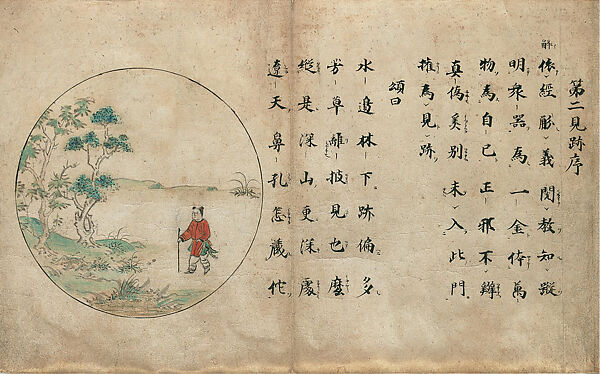 第二見跡序
解
依經義閲教知蹤
明衆器為一金体萬
物為自已正邪不辨
真偽奚別未入此門
權為見跡
頌曰
水邉林下跡偏多
芳草離披見也麼
縱是深山更深處
遼天鼻孔怎藏佗